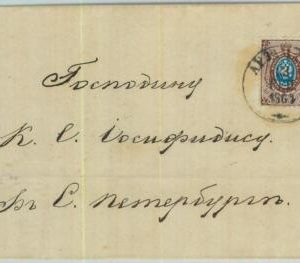 Господину
К. С. Іосифидису.
Въ С. Петербургѣ.
1865